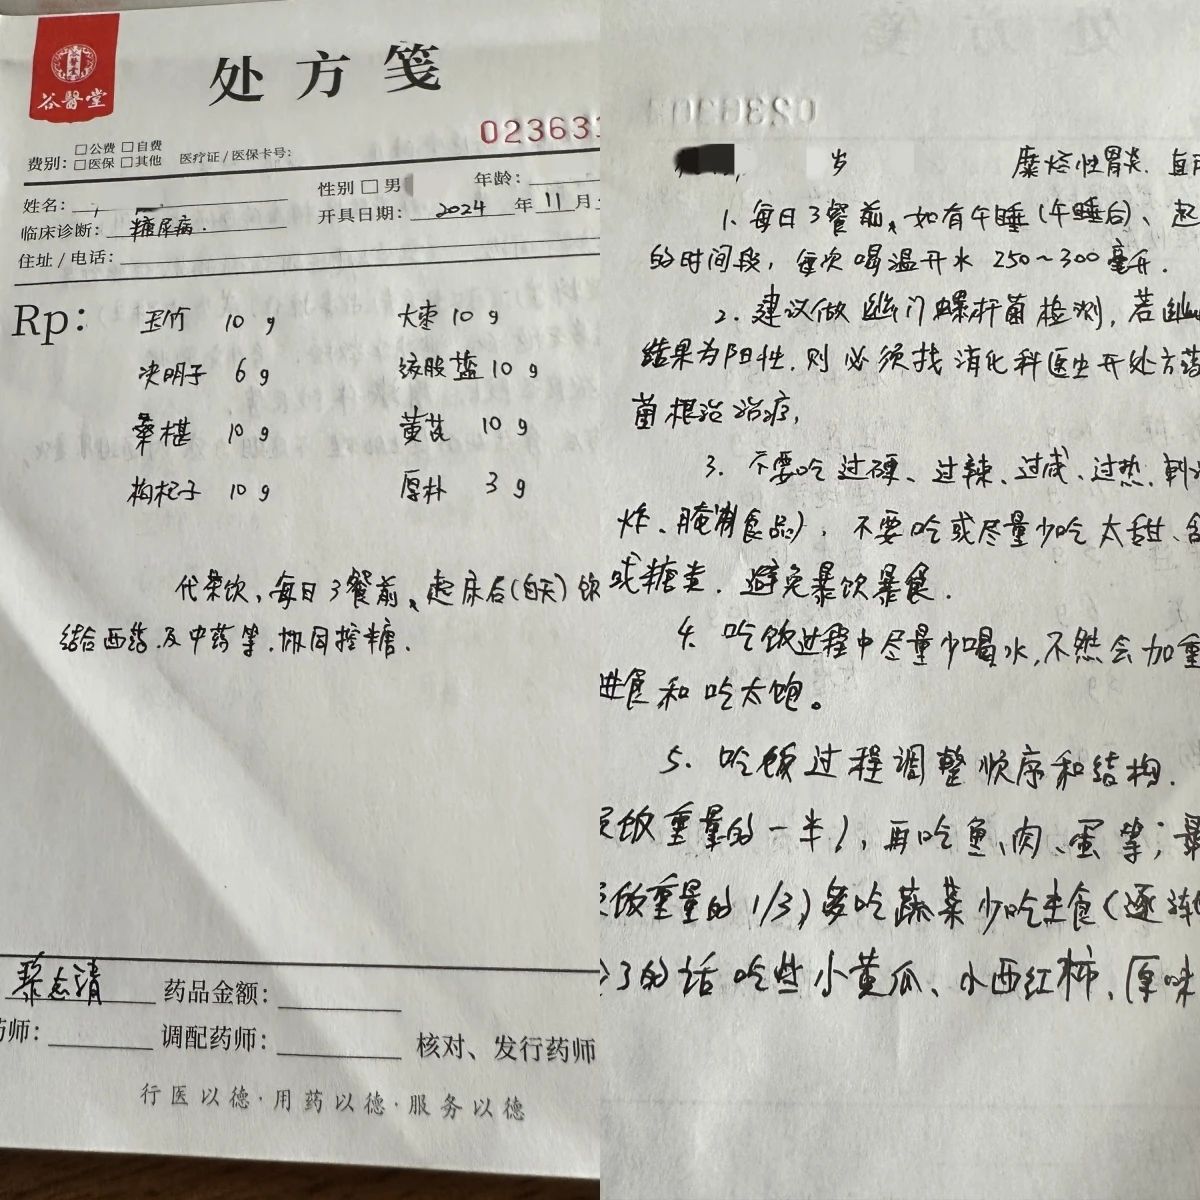 谷醫堂
处方笺
023631
费别: □公费 □自费
□医保 □其他 医疗证/医保卡号:
姓名: 性别 □男 年龄:
临床诊断: 糖尿病. 开具日期: 2024 年 11 月
住址/电话:
Rp:
玉竹 10 g 大枣 10 g
决明子 6 g 绞股蓝 10 g
桑椹 10 g 黄芪 10 g
枸杞子 10 g 厚朴 3 g
代茶饮, 每日3餐前、起床后(白天)饮
结合西药.及中药等.协同控糖.
黎志清 药品金额:
药师: 调配药师: 核对、发行药师
行医以德·用药以德·服务以德
岁 糜烂性胃炎.
1. 每日3餐前、如有午睡(午睡后)、起
的时间段, 每次喝温开水 250~300毫升.
2. 建议做幽门螺杆菌检测, 若幽
结果为阳性.则必须找消化科医生开处方药
菌根治治疗,
3. 不要吃过硬、过辣、过咸、过热、刺
炸、腌制食品), 不要吃或尽量少吃太甜、含
或糖类. 避免暴饮暴食.
4. 吃饭过程中尽量少喝水,不然会加重
进食和吃太饱。
5. 吃饭过程调整顺序和结构.
饭重量的一半), 再吃鱼、肉、蛋等;最
饭重量的1/3)多吃蔬菜少吃主食(逐渐
了的话吃些小黄瓜、小西红柿、原味